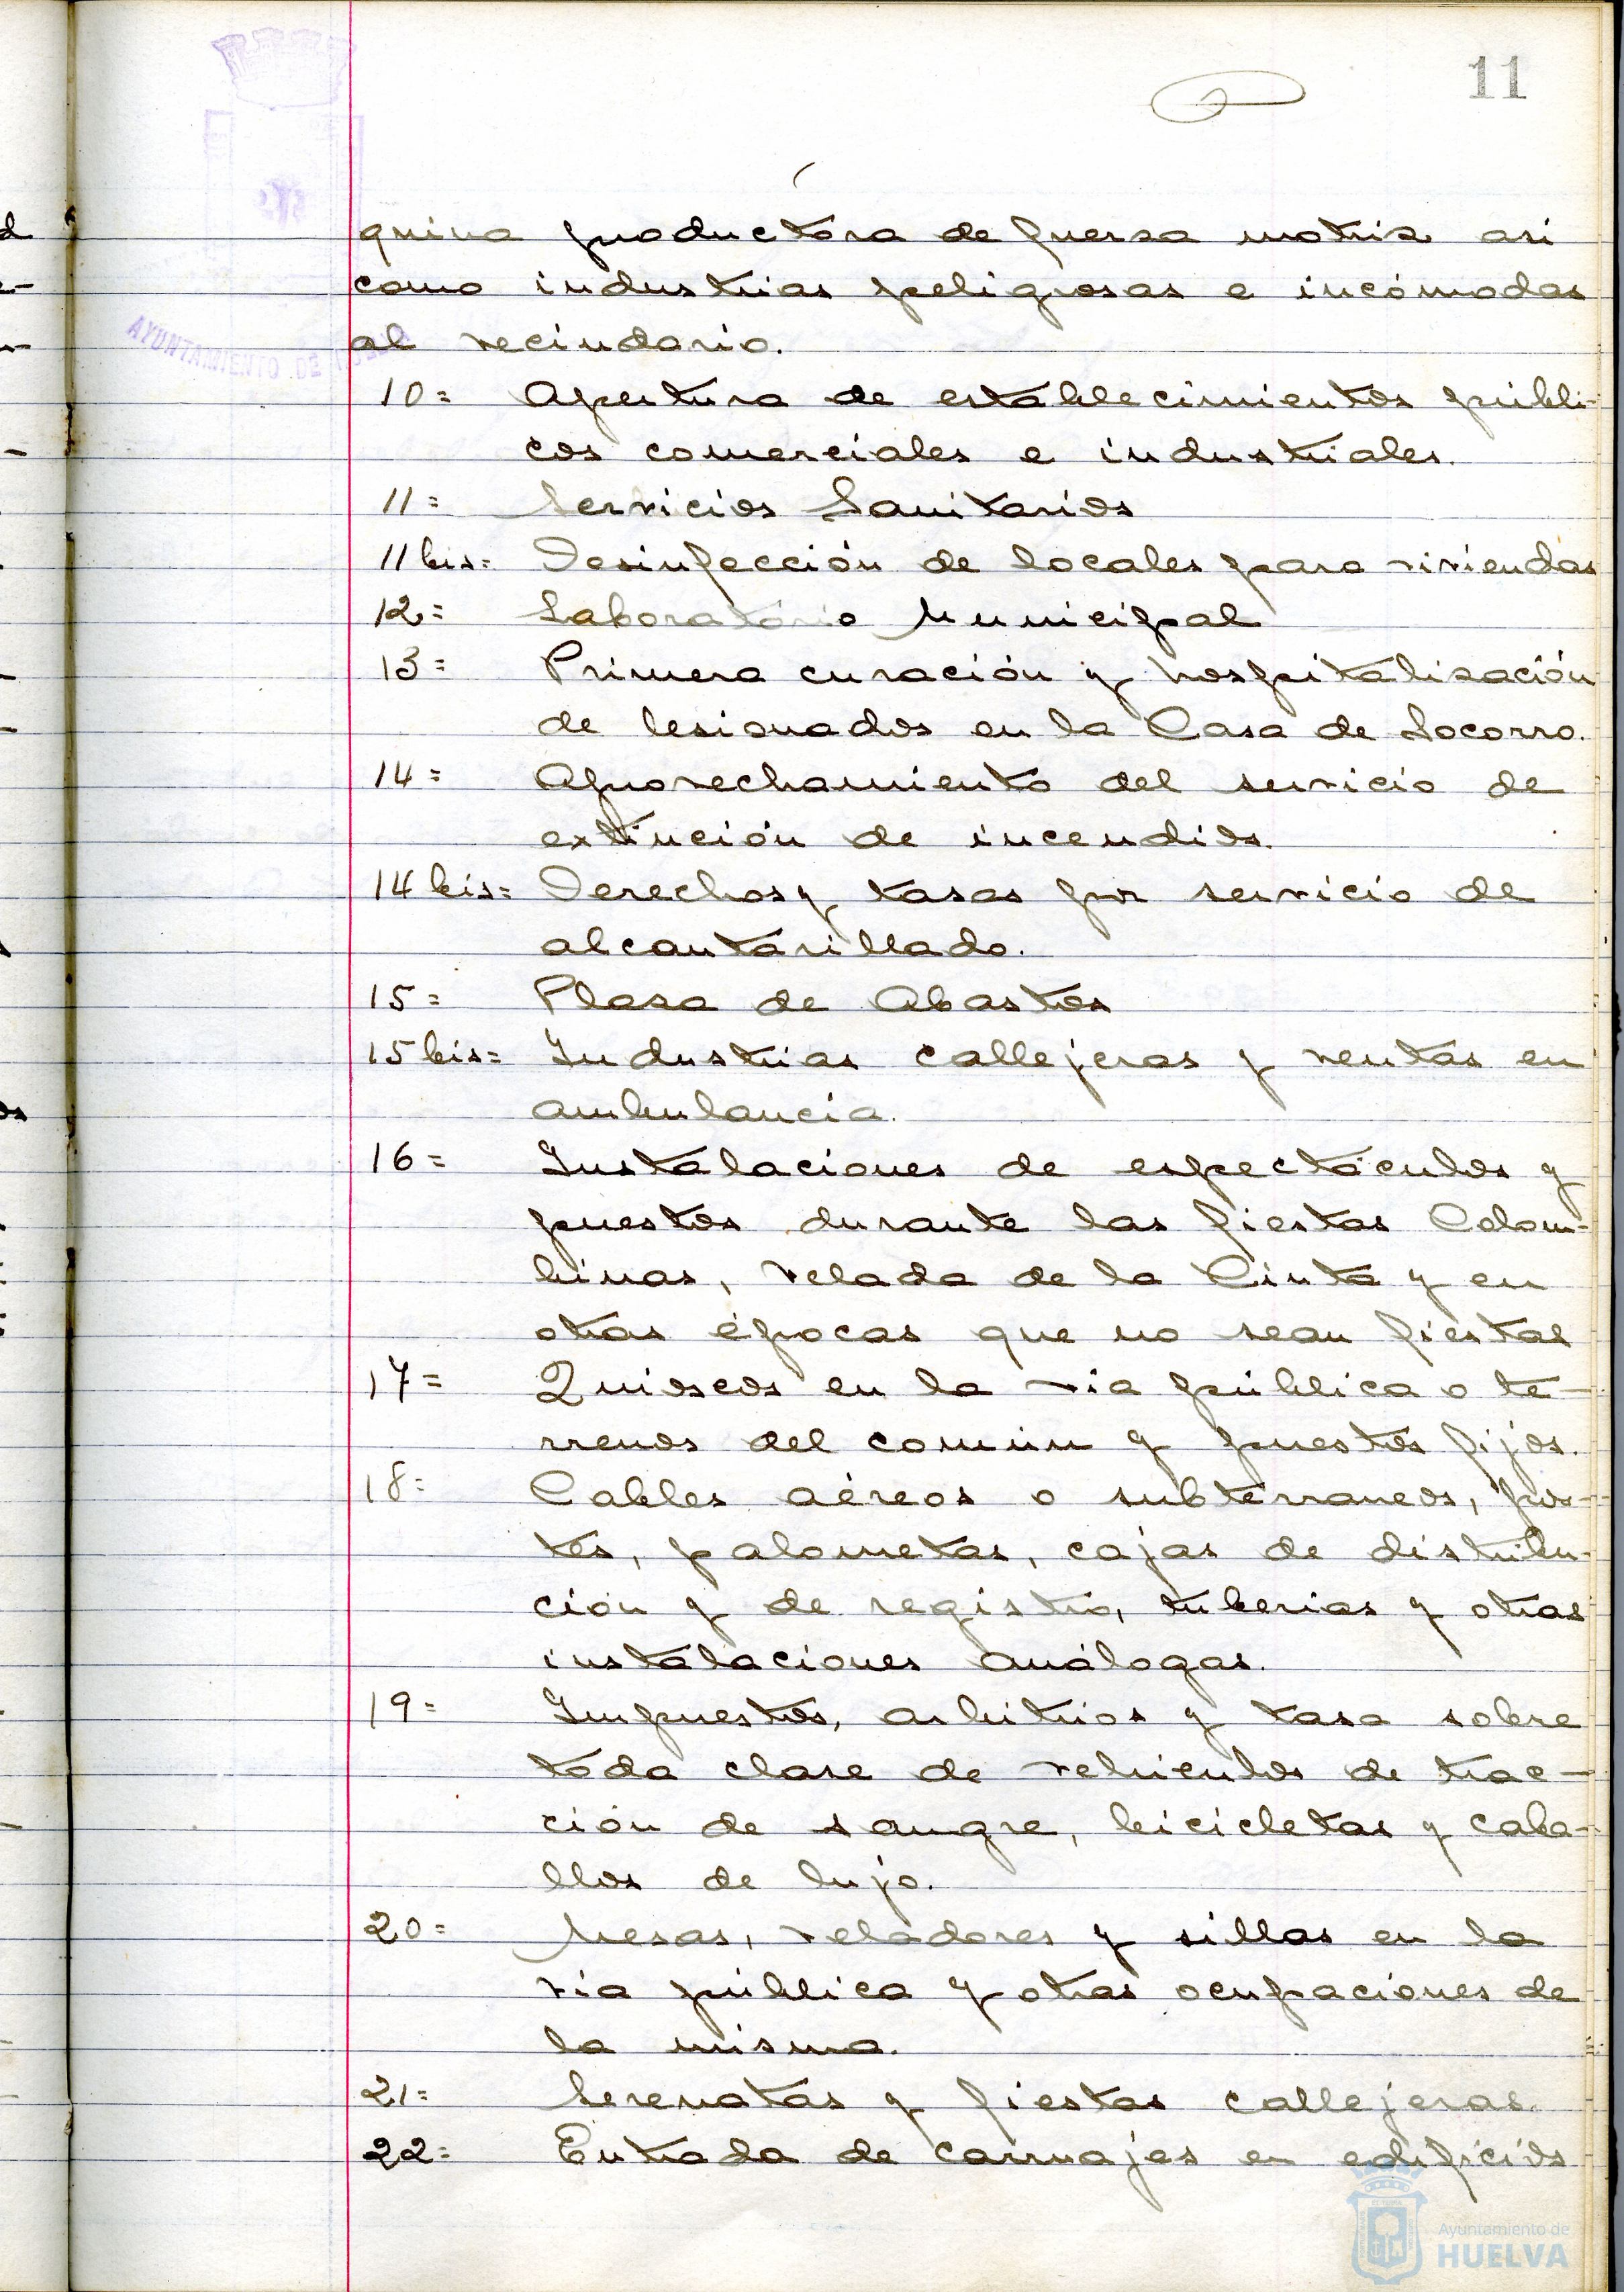 11
quina productora de fuerza motriz asi
como industrias peligrosas e incómodas
al vecindario.
AYUNTAMIENTO DE
10= Apertura de establecimientos públi-
cos comerciales e industriales.
11= Servicios Sanitarios
11 bis= Desinfección de locales para viviendas
12= Laboratorio Municipal
13= Primera curación y hospitalización
de lesionados en la Casa de Socorro.
14= Aprovechamiento del servicio de
extinción de incendios.
14 bis= Derechos y tasas por servicio de
alcantarillado.
15= Plaza de Abastos
15 bis= Industrias callejeras y ventas en
ambulancia.
16= Instalaciones de espectáculos y
puestos durante las fiestas Colom-
binas, Velada de la Cinta y en
otras épocas que no sean fiestas
17= Quioscos en la via pública o te-
rrenos del común y puestos fijos.
18= Cables aéreos o subterraneos, pos-
tes, palometas, cajas de distribu-
ción y de registro, tuberias y otras
instalaciones análogas.
19= Impuestos, arbitrios y tasa sobre
toda clase de vehiculos de trac-
ción de sangre, bicicletas y caba-
llos de lujo.
20= Mesas, veladores y sillas en la
via pública y otras ocupaciones de
la misma.
21= Serenatas y fiestas callejeras.
22= Entrada de carruajes en edificios
Ayuntamiento de
HUELVA